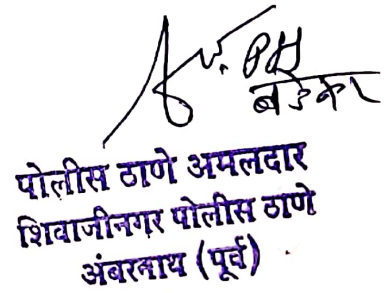 बडेकर
पोलीस ठाणे अमलदार
शिवाजीनगर पोलीस ठाणे
अंबरनाथ (पूर्व)